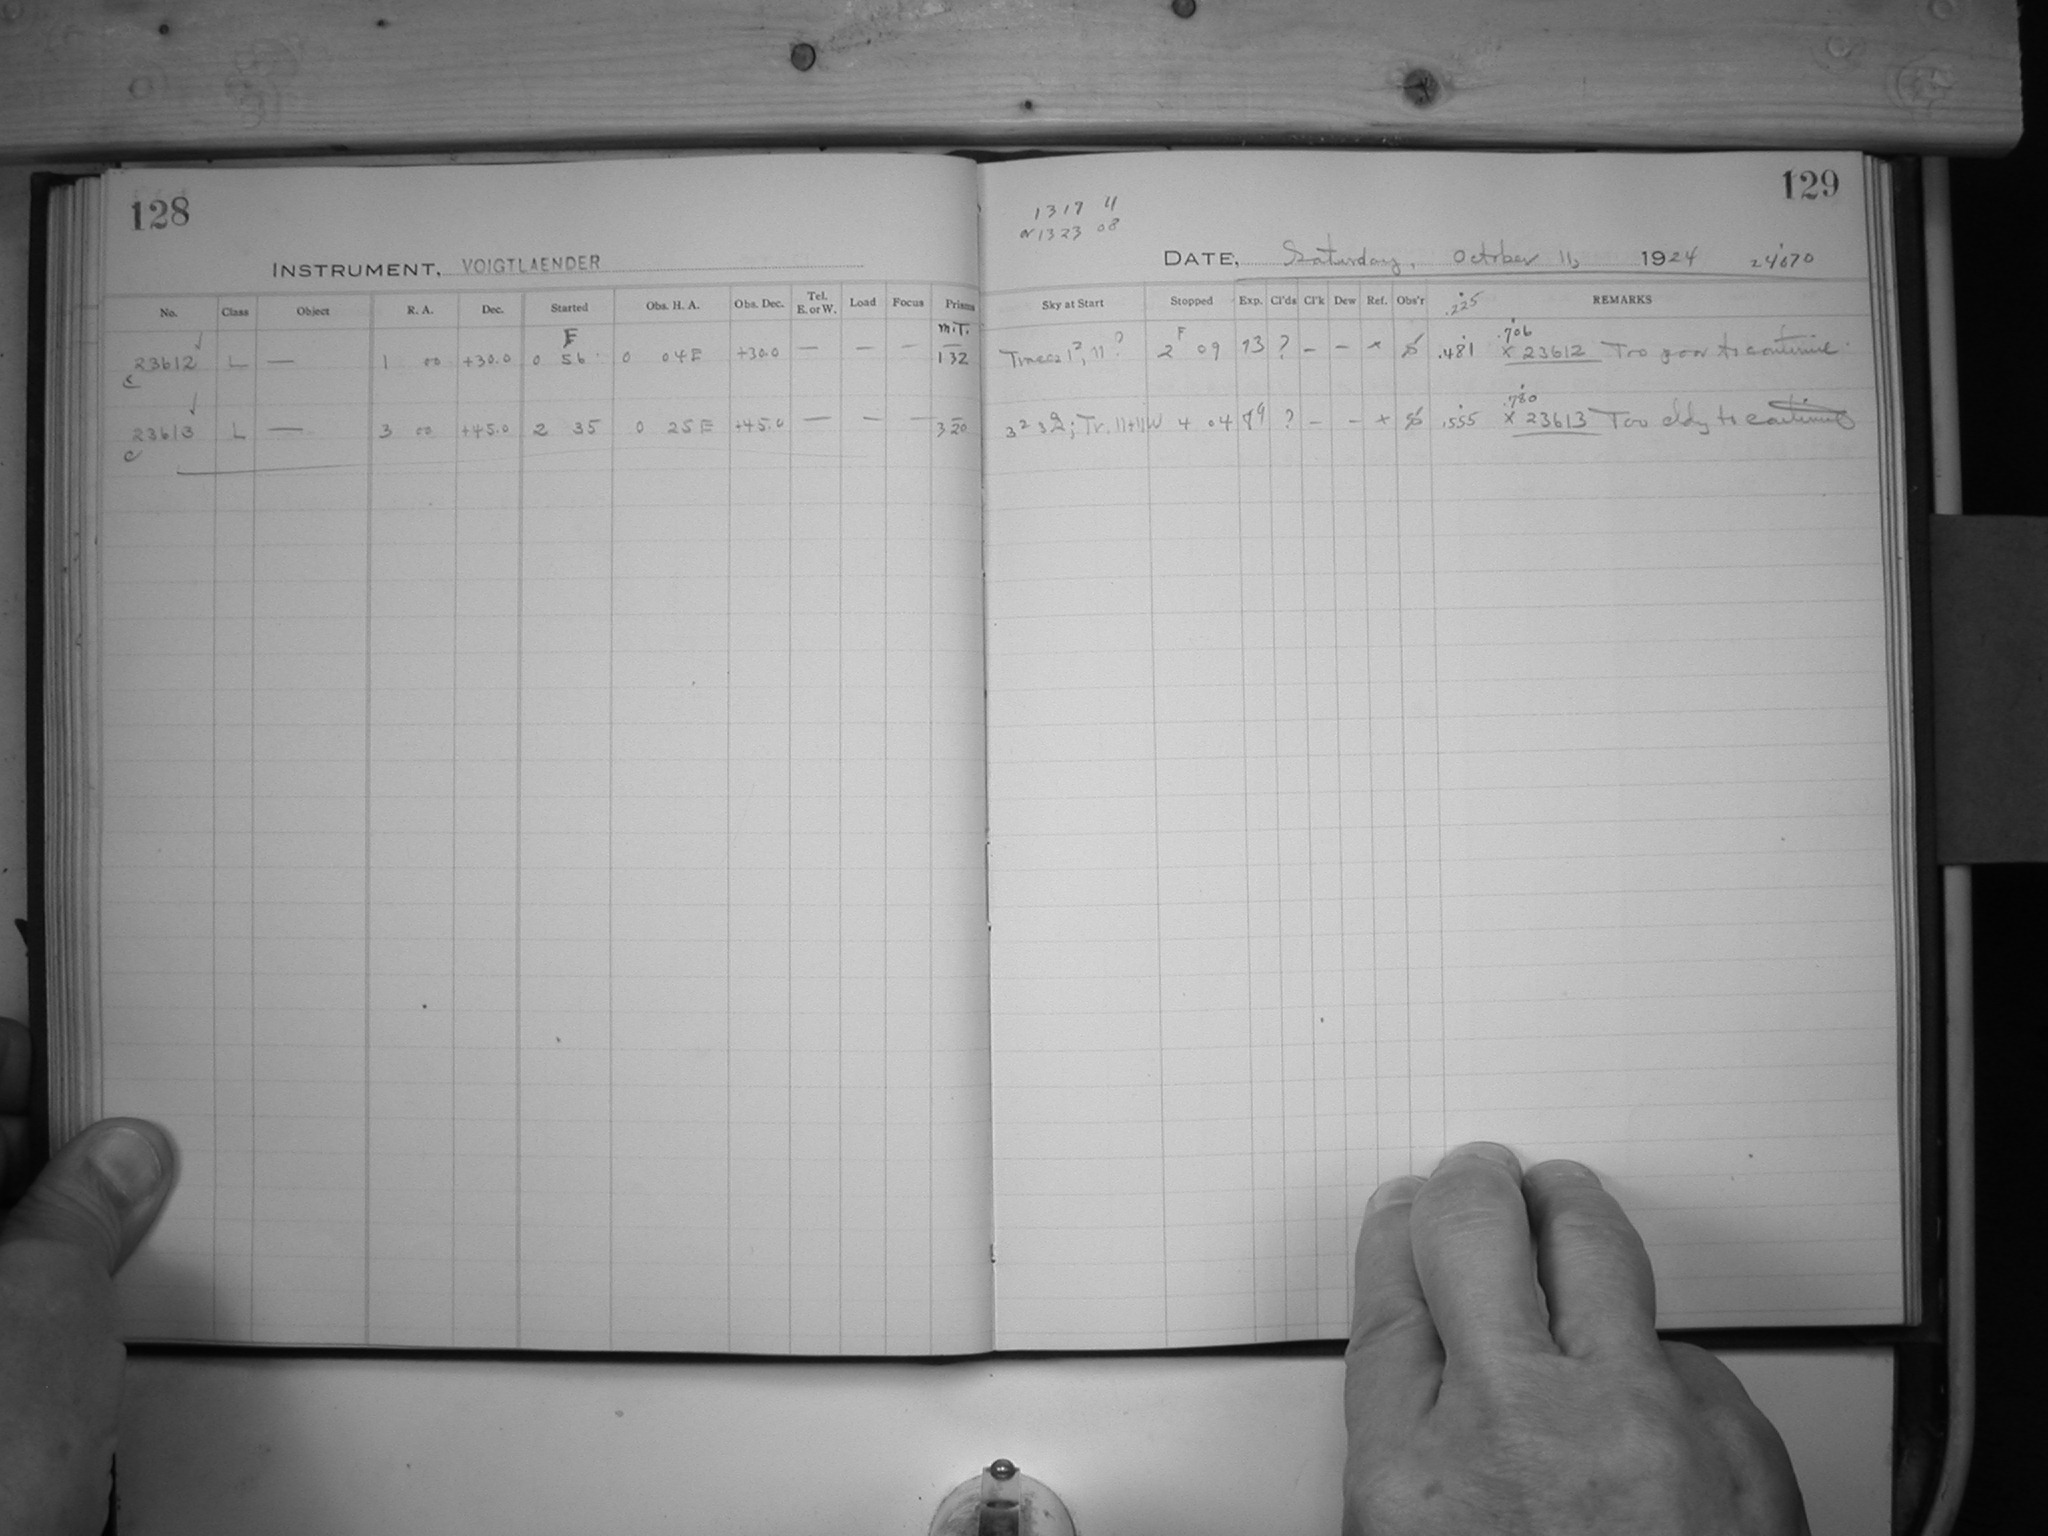 128
INSTRUMENT, VOIGTLAENDER
No. Class Object R. A. Dec. Started Obs. H. A. Obs. Dec. Tel. E. or W. Load Focus Prisms
F m.T.
23612 L — 1 00 +30.0 0 56 0 04E +30.0 — — — — 132
c
23613 L — 3 00 +45.0 2 35 0 25E +45.0 — — — — 320
c
129
1317 11
or 1323 08
DATE, Saturday, October 11, 1924 24070
Sky at Start Stopped Exp. Cl'ds Cl'k Dew Ref. Obs'r .225 REMARKS
F .706
Traces 1², 11? 2 09 73 ? – – × .481 × 23612 Too poor to continue.
.780
Tr. 11+11W 4 04 89 ? – – + .555 × 23613 Too cldy to continue